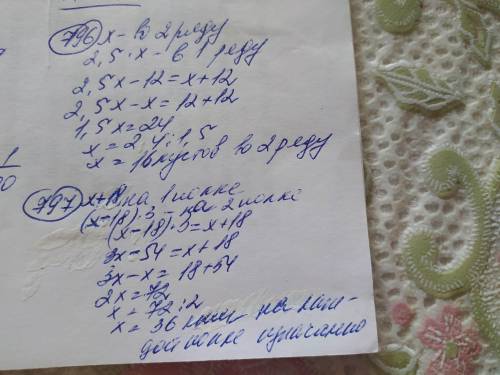 796 x - во 2 ряду
2,5·x - в 1 ряду
2,5x-12=x+12
2,5x-x=12+12
1,5x=24
x=24:1,5
x=16 кустов во 2 ряду
797 x+18 на 1 полке
(x-18)·3 - на 2 полке
(x-18)·3=x+18
3x-54=x+18
3x-x=18+54
2x=72
x=72:2
x=36 книг на каж-
дой полке изначально
1
0